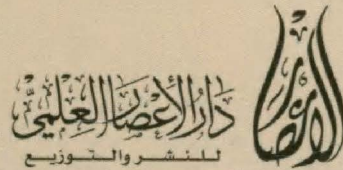 دار الإعصار العلمي
للنشر والتوزيع
الإعصار